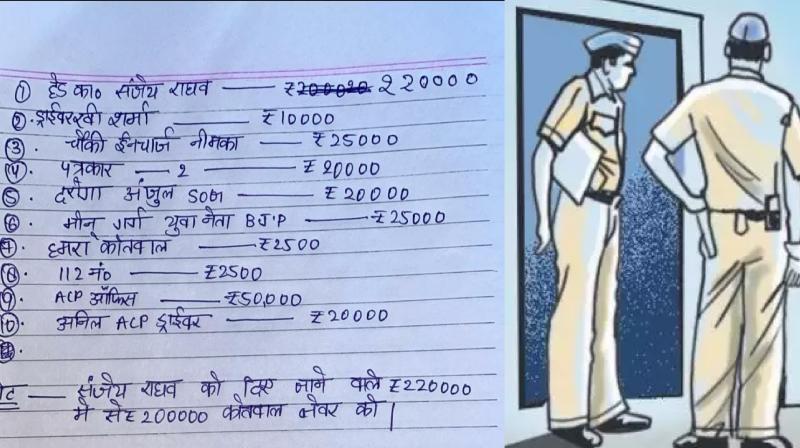 ① हेड का० संजय राघव —— ₹200020 220000
②. ड्राईवर रवी शर्मा —— ₹10000
③. चौकी ईनचार्ज नीमका —— ₹25000
④. पत्रकार — 2 —— ₹20000
⑤. दरोगा अंजुल SOG —— ₹20000
⑥. मोनू गर्ग युवा नेता BJP —— ₹25000
⑦. हमरा कोतवाल —— ₹2500
⑧. 112 नं० —— ₹2500
⑨. ACP ऑफिस —— ₹50,000
⑩. अनिल ACP ड्राईवर —— ₹20000
नोट — संजय राघव को दिए जाने वाले ₹220000
में से ₹200000 कोतवाल जेवर को |